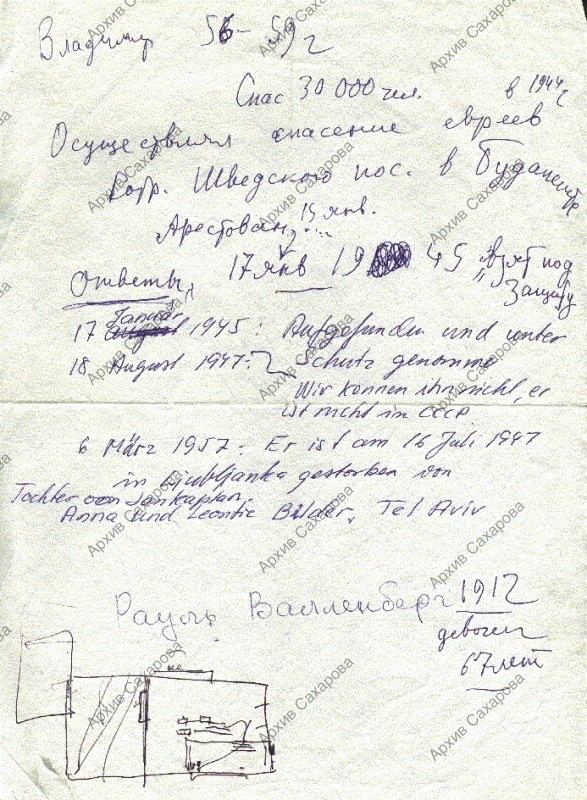 Владимир 56-59 г
Спас 30 000 чел. в 1944 г
Осуществлял спасение евреев
Шведского пос. в Будапеште
Арестован 15 янв.
17 янв 19 45 "взят под
Защиту
Ответы
17 Januar August 1945: Aufgefunden und unter
18 August 1947: Schutz genomme
Wir kennen ihn nicht, er
ist nicht in CCCP
6 März 1957: Er ist am 16 Juli 1947
in Ljubljanka gestorben von
Tochter von Jankaplan.
Anna und Leontic Bilder, Tel Aviv
Рауль Валленберг 1912
67 лет
Архив Сахарова